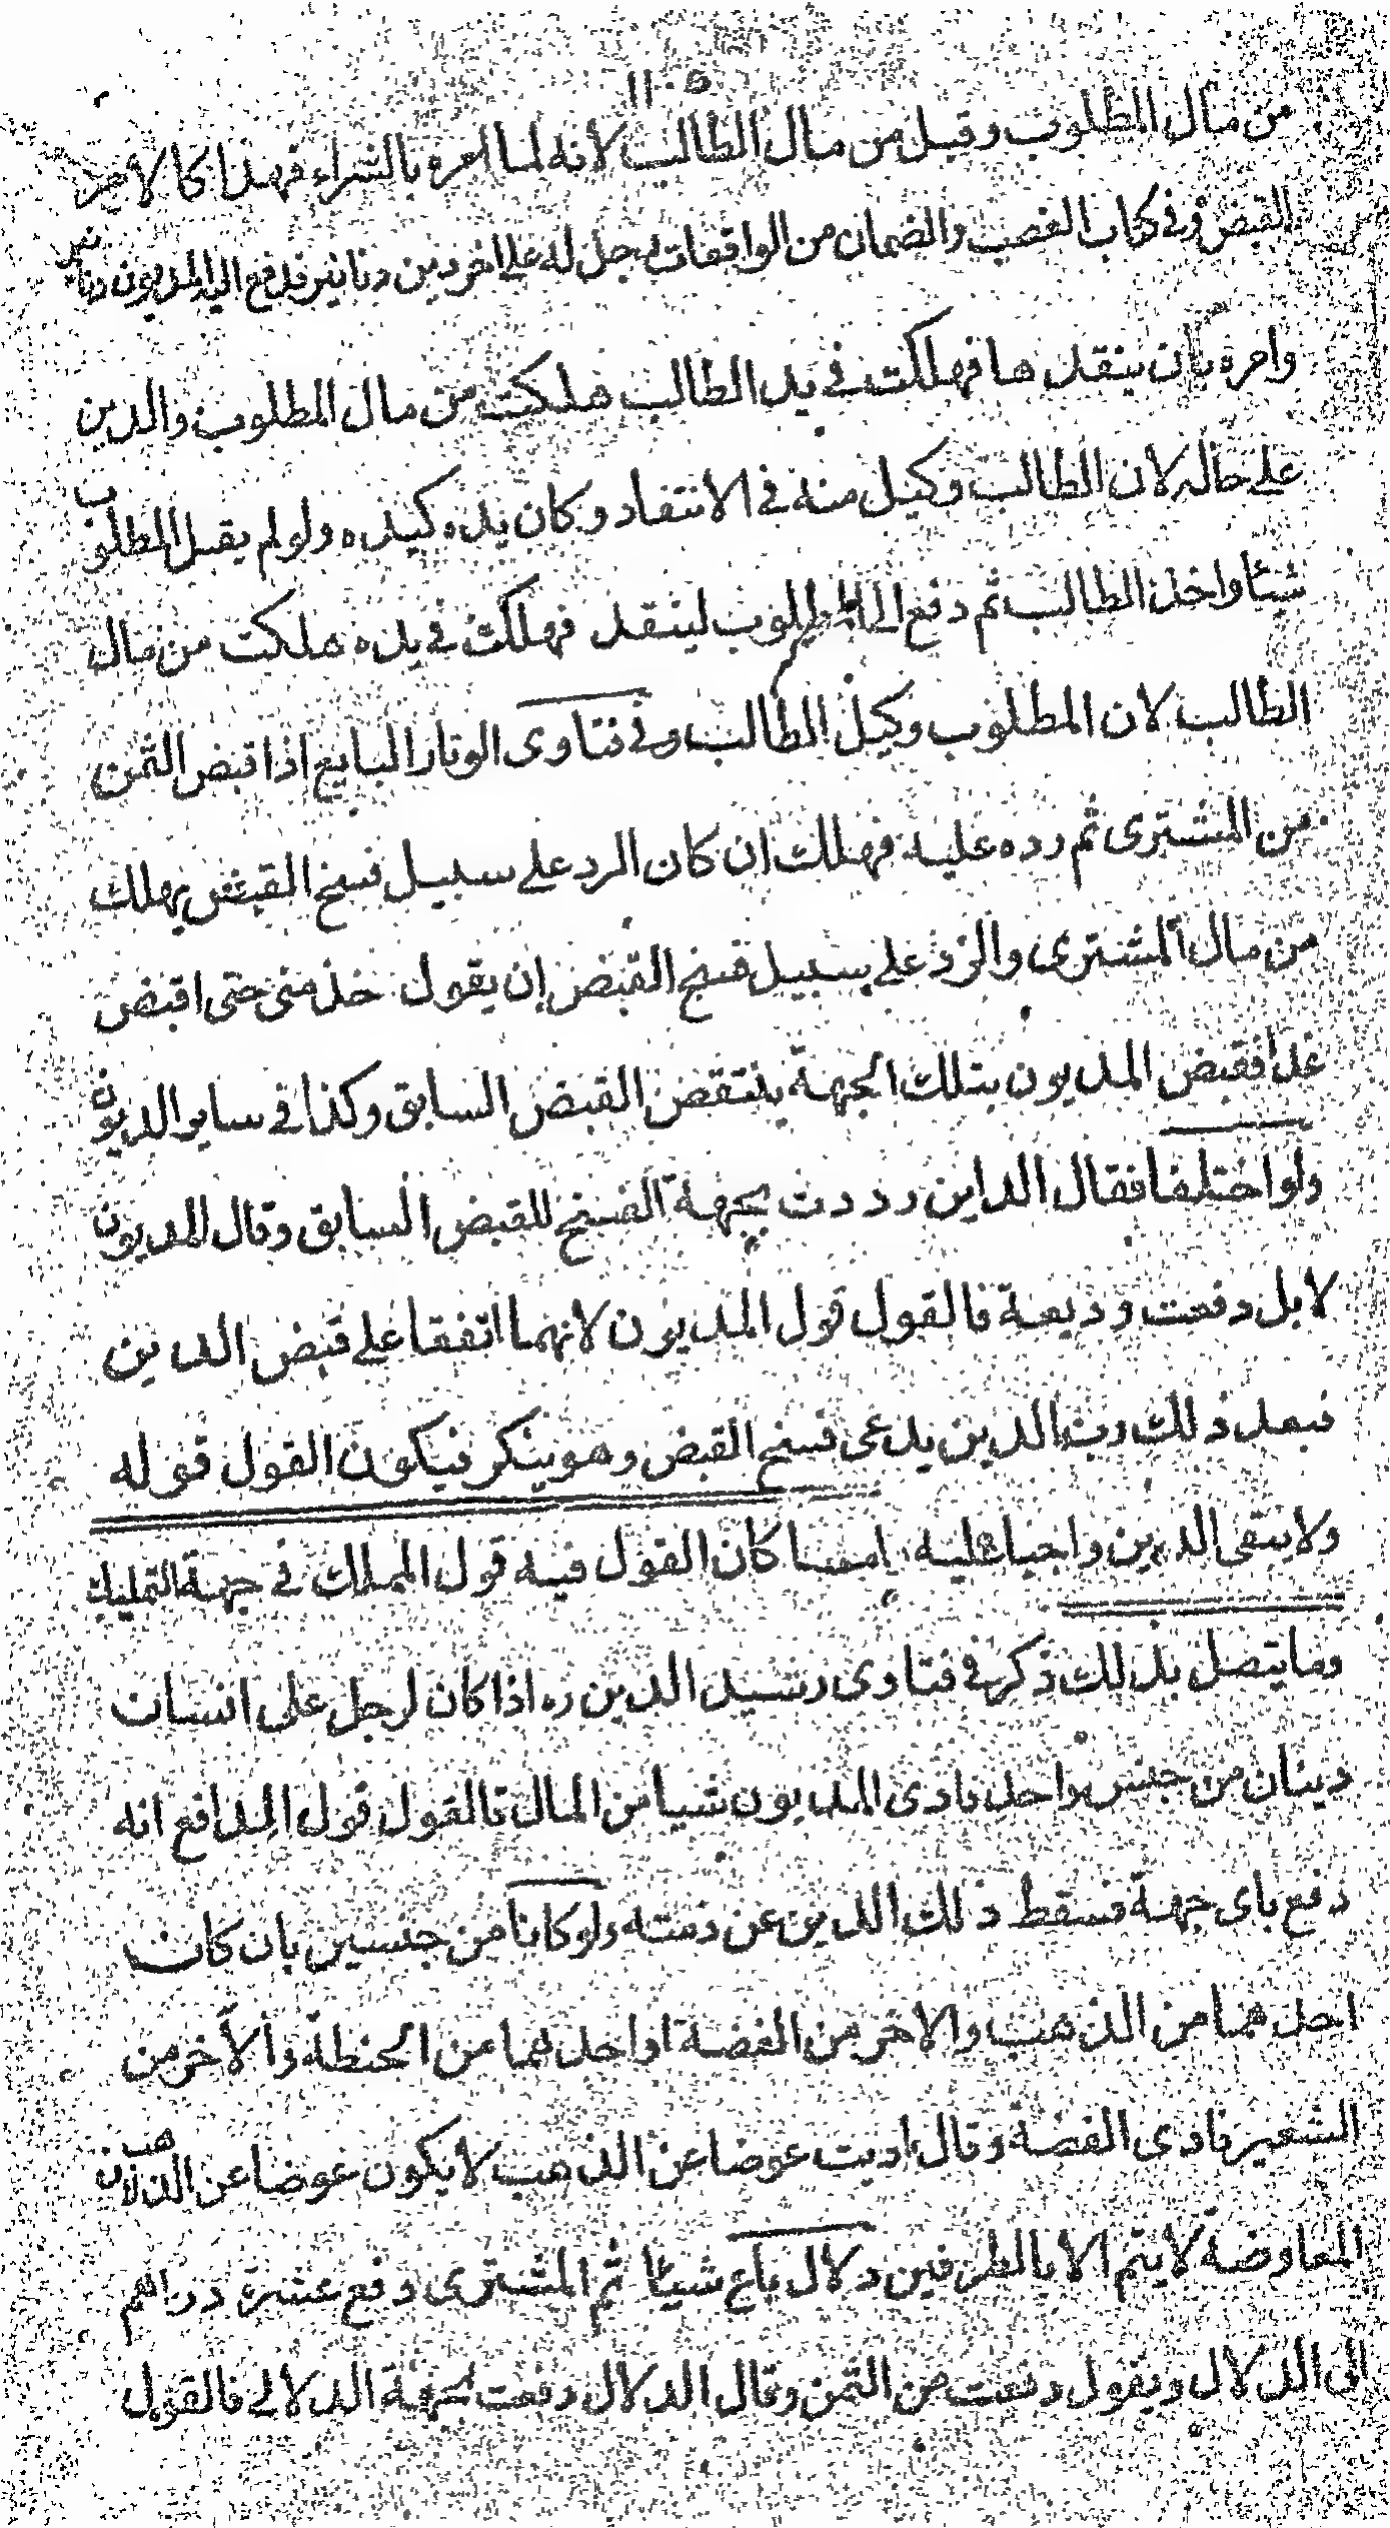 من مال المطلوب وقيل من مال الطالب لانه لما امره بالشراء فهذا كالامر
القبض وفي كتاب الغصب والضمان من الواقعات رجل له على اخر دين دنانير فدفع اليه المديون دنانير
وامره بان ينقدها فهلكت في يد الطالب هلكت من مال المطلوب والدين
على حاله لان الطالب وكيل منه في الانتقاد وكان يده كيده ولو لم يقبل المطلوب
شيئا واخذ الطالب ثم دفع الى المطلوب لينقد فهلكت في يده هلكت من مال
الطالب لان المطلوب وكيل الطالب وفي فتاوى الوتار البايع اذا قبض الثمن
من المشترى ثم رده عليه فهلك ان كان الرد على سبيل فسخ القبض يهلك
من مال المشترى والرد على سبيل فسخ القبض ان يقول خذ منى حتى اقبض
غدا فقبض المديون بتلك الجهة ينتقض القبض السابق وكذا في ساير الديون
ولو اختلفا فقال الداين رددت بجهة الفسخ للقبض السابق وقال المديون
لا بل دفعت وديعة فالقول قول المديون لانهما اتفقا على قبض الدين
فبعد ذلك رب الدين يدعى فسخ القبض وهو ينكر فيكون القول قوله
ولا يبقى الدين واجبا عليه كان القول فيه قول المملك في جهة التمليك
وما يتصل بذلك ذكر في فتاوى رشيد الدين ره اذا كان لرجل على انسان
دينان من جنس واحد فادى المديون شيا من المال فالقول قول الدافع انه
دفع باى جهة فسقط ذلك الدين عن ذمته ولو كانا من جنسين بان كان
احدهما من الذهب والاخر من الفضة او احدهما من الحنطة والاخر من
الشعير فادى الفضة وقال اديت عوضا عن الذهب لا يكون عوضا عن الذهب لان
المعاوضة لا يتم الا بالطرفين دلال باع شيئا ثم المشترى دفع عشرة دراهم
الى الدلال ويقول دفعت من الثمن وقال الدلال دفعت بجهة الدلالي فالقول